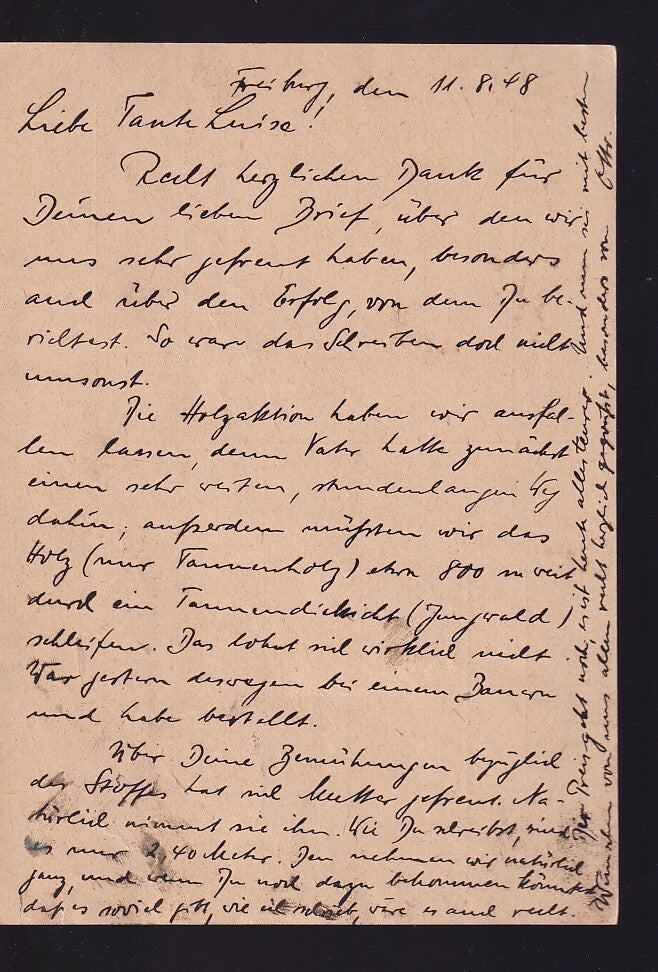 Freiburg, den 11.8.48
Liebe Tante Luise!
Recht herzlichen Dank für
Deinen lieben Brief, über den wir
uns sehr gefreut haben, besonders
auch über den Erfolg, von dem Du be-
richtest. So war das Schreiben doch nicht
umsonst.
Die Holzaktion haben wir ausfal-
len lassen, denn Vater hatte zunächst
einen sehr weiten, stundenlangen Weg
dahin; außerdem müßten wir das
Holz (nur Tannenholz) etwa 800 m weit
durch ein Tannendickicht (Jungwald)
schleifen. Das lohnt sich wirklich nicht.
War gestern deswegen bei einem Bauern
und habe bestellt.
Über Deine Bemühungen bezüglich
des Stoffes hat sich Mutter gefreut. Na-
türlich nimmt sie ihn. Wie Du schreibst, sind
es nur 2,40 Meter. Den nehmen wir natürlich
ganz, und wenn Du noch dazu bekommen könntest,
daß es soviel gibt, wie ich schrieb, wäre es auch recht.
Der Preis geht noch, es ist heute alles teurer. Und nun sei mit besten
Wünschen von uns allen recht herzlich gegrüßt, besonders von Otto.